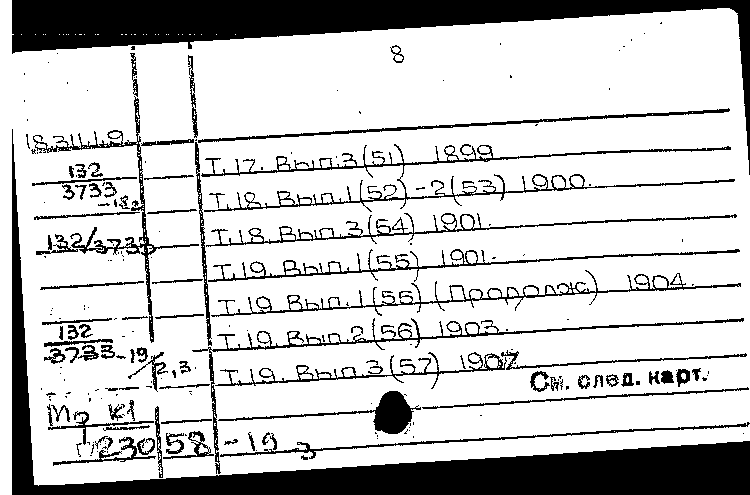 8
18.311.1.9.
Т. 17. Вып. 3 (51) 1899
132
3733
-18
Т. 18. Вып. 1 (52) - 2 (53) 1900.
Т. 18. Вып. 3 (54) 1901.
132/3733
Т. 19. Вып. 1 (55) 1901.
Т. 19. Вып. 1 (55) (Продолж) 1904.
132
3733-19/2,3
Т. 19. Вып. 2 (56) 1903.
Т. 19. Вып. 3 (57) 1907
См. след. карт.
К1
23058-19
3